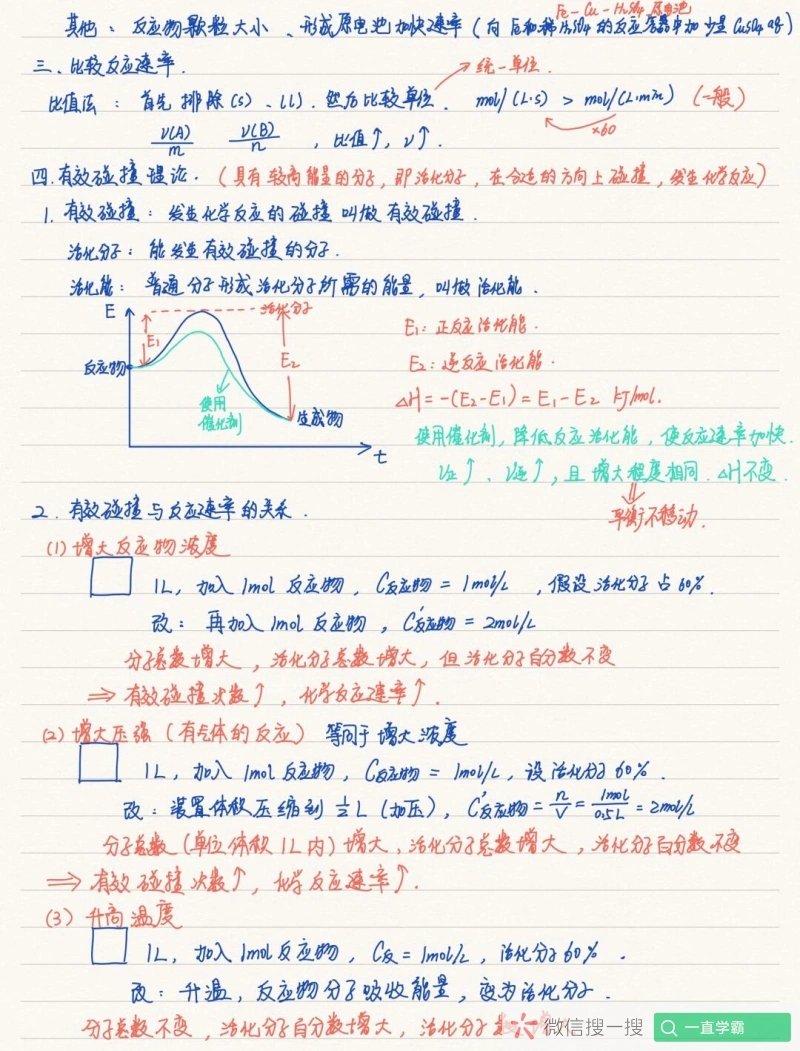 Fe-Cu-H₂SO₄原电池
其他：反应物颗粒大小、形成原电池加快速率（向Fe和稀H₂SO₄的反应容器中加少量CuSO₄ aq）
三、比较反应速率.
统一单位.
比值法：首先排除(s)、(l).然后比较单位. mol/(L·s) > mol/(L·min) （一般）
×60
v(A)/m v(B)/n ，比值↑, v↑.
四.有效碰撞理论.（具有较高能量的分子，即活化分子，在合适的方向上碰撞，发生化学反应）
1.有效碰撞：发生化学反应的碰撞叫做有效碰撞.
活化分子：能发生有效碰撞的分子.
活化能：普通分子形成活化分子所需的能量，叫做活化能.
E
活化分子
E₁
E₁：正反应活化能.
反应物
E₂
E₂：逆反应活化能.
使用
催化剂
△H=-(E₂-E₁)=E₁-E₂ kJ/mol.
生成物
t
使用催化剂，降低反应活化能，使反应速率加快.
V正↑、V逆↑，且增大程度相同.△H不变.
平衡不移动.
2.有效碰撞与反应速率的关系.
(1)增大反应物浓度
1L，加入1mol反应物，C反应物=1mol/L ，假设活化分子占60%.
改：再加入1mol反应物，C'反应物=2mol/L
分子总数增大，活化分子总数增大，但活化分子百分数不变
⇒有效碰撞次数↑，化学反应速率↑.
(2)增大压强（有气体的反应） 等同于增大浓度
1L，加入1mol反应物，C反应物=1mol/L，设活化分子60%.
改：装置体积压缩到½L（加压），C'反应物=n/V=1mol/0.5L=2mol/L
分子总数（单位体积1L内）增大，活化分子总数增大，活化分子百分数不变
⇒有效碰撞次数↑，化学反应速率↑.
(3)升高温度
1L，加入1mol反应物，C反=1mol/L，活化分子60%.
改：升温，反应物分子吸收能量，变为活化分子.
分子总数不变，活化分子百分数增大，活化分子
微信搜一搜
一直学霸